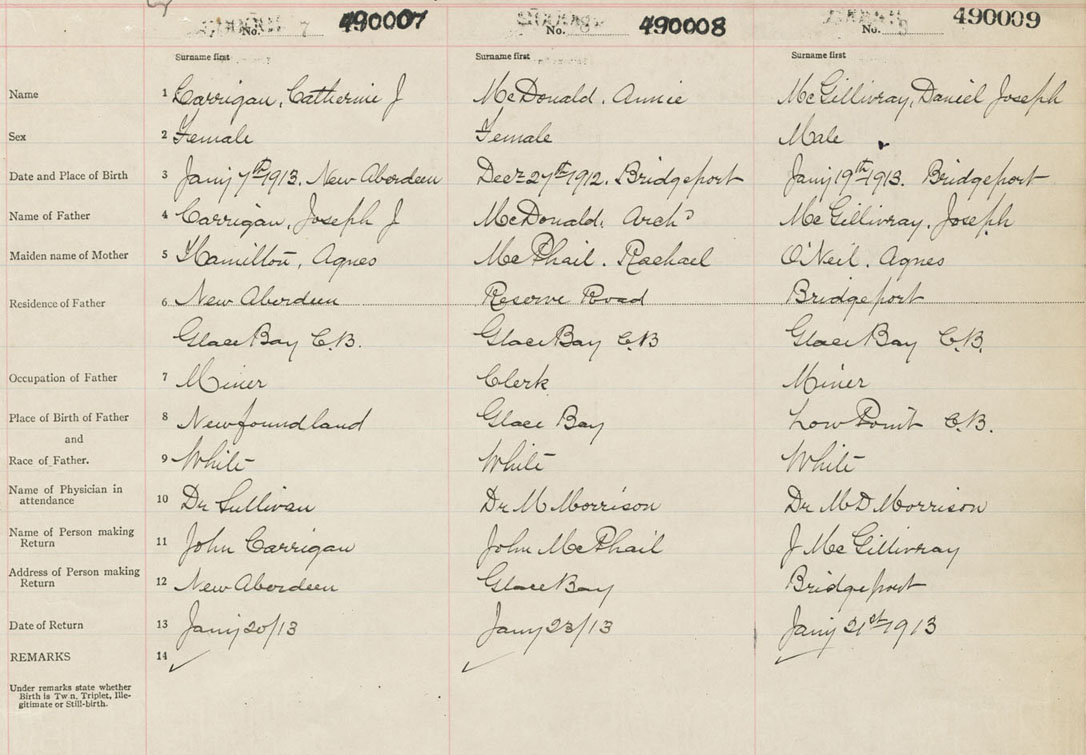 No. 7 490007 No. 8 490008 No. 9 490009
Surname first Surname first Surname first
Name 1 Carrigan, Catherine J McDonald. Annie McGillivray, Daniel Joseph
Sex 2 Female Female Male
Date and Place of Birth 3 Jany 7th 1913. New Aberdeen Decr 27th 1912. Bridgeport Jany 19th 1913. Bridgeport
Name of Father 4 Carrigan, Joseph J McDonald. Archd McGillivray, Joseph
Maiden name of Mother 5 Hamilton, Agnes McPhail. Rachael O'Neil. Agnes
Residence of Father 6 New Aberdeen Reserve Road Bridgeport
Glace Bay C.B. Glace Bay C.B Glace Bay C.B.
Occupation of Father 7 Miner Clerk Miner
Place of Birth of Father 8 Newfoundland Glace Bay Low Point C.B.
and
Race of Father. 9 White White White
Name of Physician in
attendance 10 Dr Sullivan Dr M Morrison Dr McD Morrison
Name of Person making
Return 11 John Carrigan John McPhail J McGillivray
Address of Person making
Return 12 New Aberdeen Glace Bay Bridgeport
Date of Return 13 Jany 20/13 Jany 23/13 Jany 21st 1913
REMARKS 14
Under remarks state whether
Birth is Twin, Triplet, Ille-
gitimate or Still-birth.